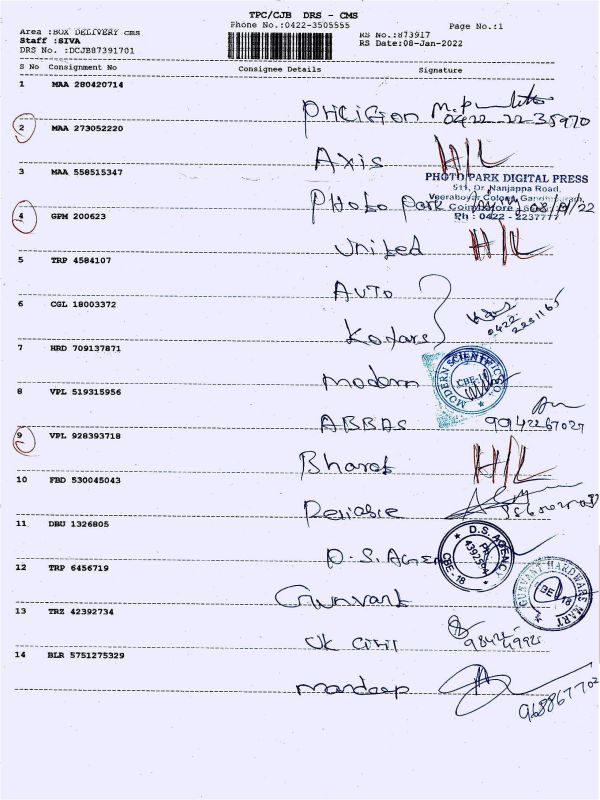 TPC/CJB DRS - CMS
Phone No.:0422-3505555
Page No.:1
Area :BOX DELIVERY CMS
Staff :SIVA
DRS No. :DCJB87391701
RS No.:873917
RS Date:08-Jan-2022
S No Consignment No Consignee Details Signature
1 MAA 280420714
0422-22-35970
2 MAA 273052220
Axis H/L
3 MAA 558515347
PHOTO PARK DIGITAL PRESS
511, Dr. Nanjappa Road,
Veeraboyar Colony, Gandhipuram,
Photo Park Coimbatore
Ph : 0422 - 2237777
4 GPM 200623
United H/L
5 TRP 4584107
Auto
6 CGL 18003372
Kotars
0422
2251165
7 HRD 709137871
modern MODERN SCIENTIFIC CO. CBE-18
8 VPL 519315956
ABBAS
9942267027
9 VPL 928393718
Bharat H/L
10 FBD 530045043
Reliable
11 DBU 1326805
D.S. Agen D.S. AGENCY PH: 4392594 CBE-18
12 TRP 6456719
Gunvant GUNVANT HARDWARE MART CBE-18
13 TRZ 42392734
UK
14 BLR 5751275329
mandeep